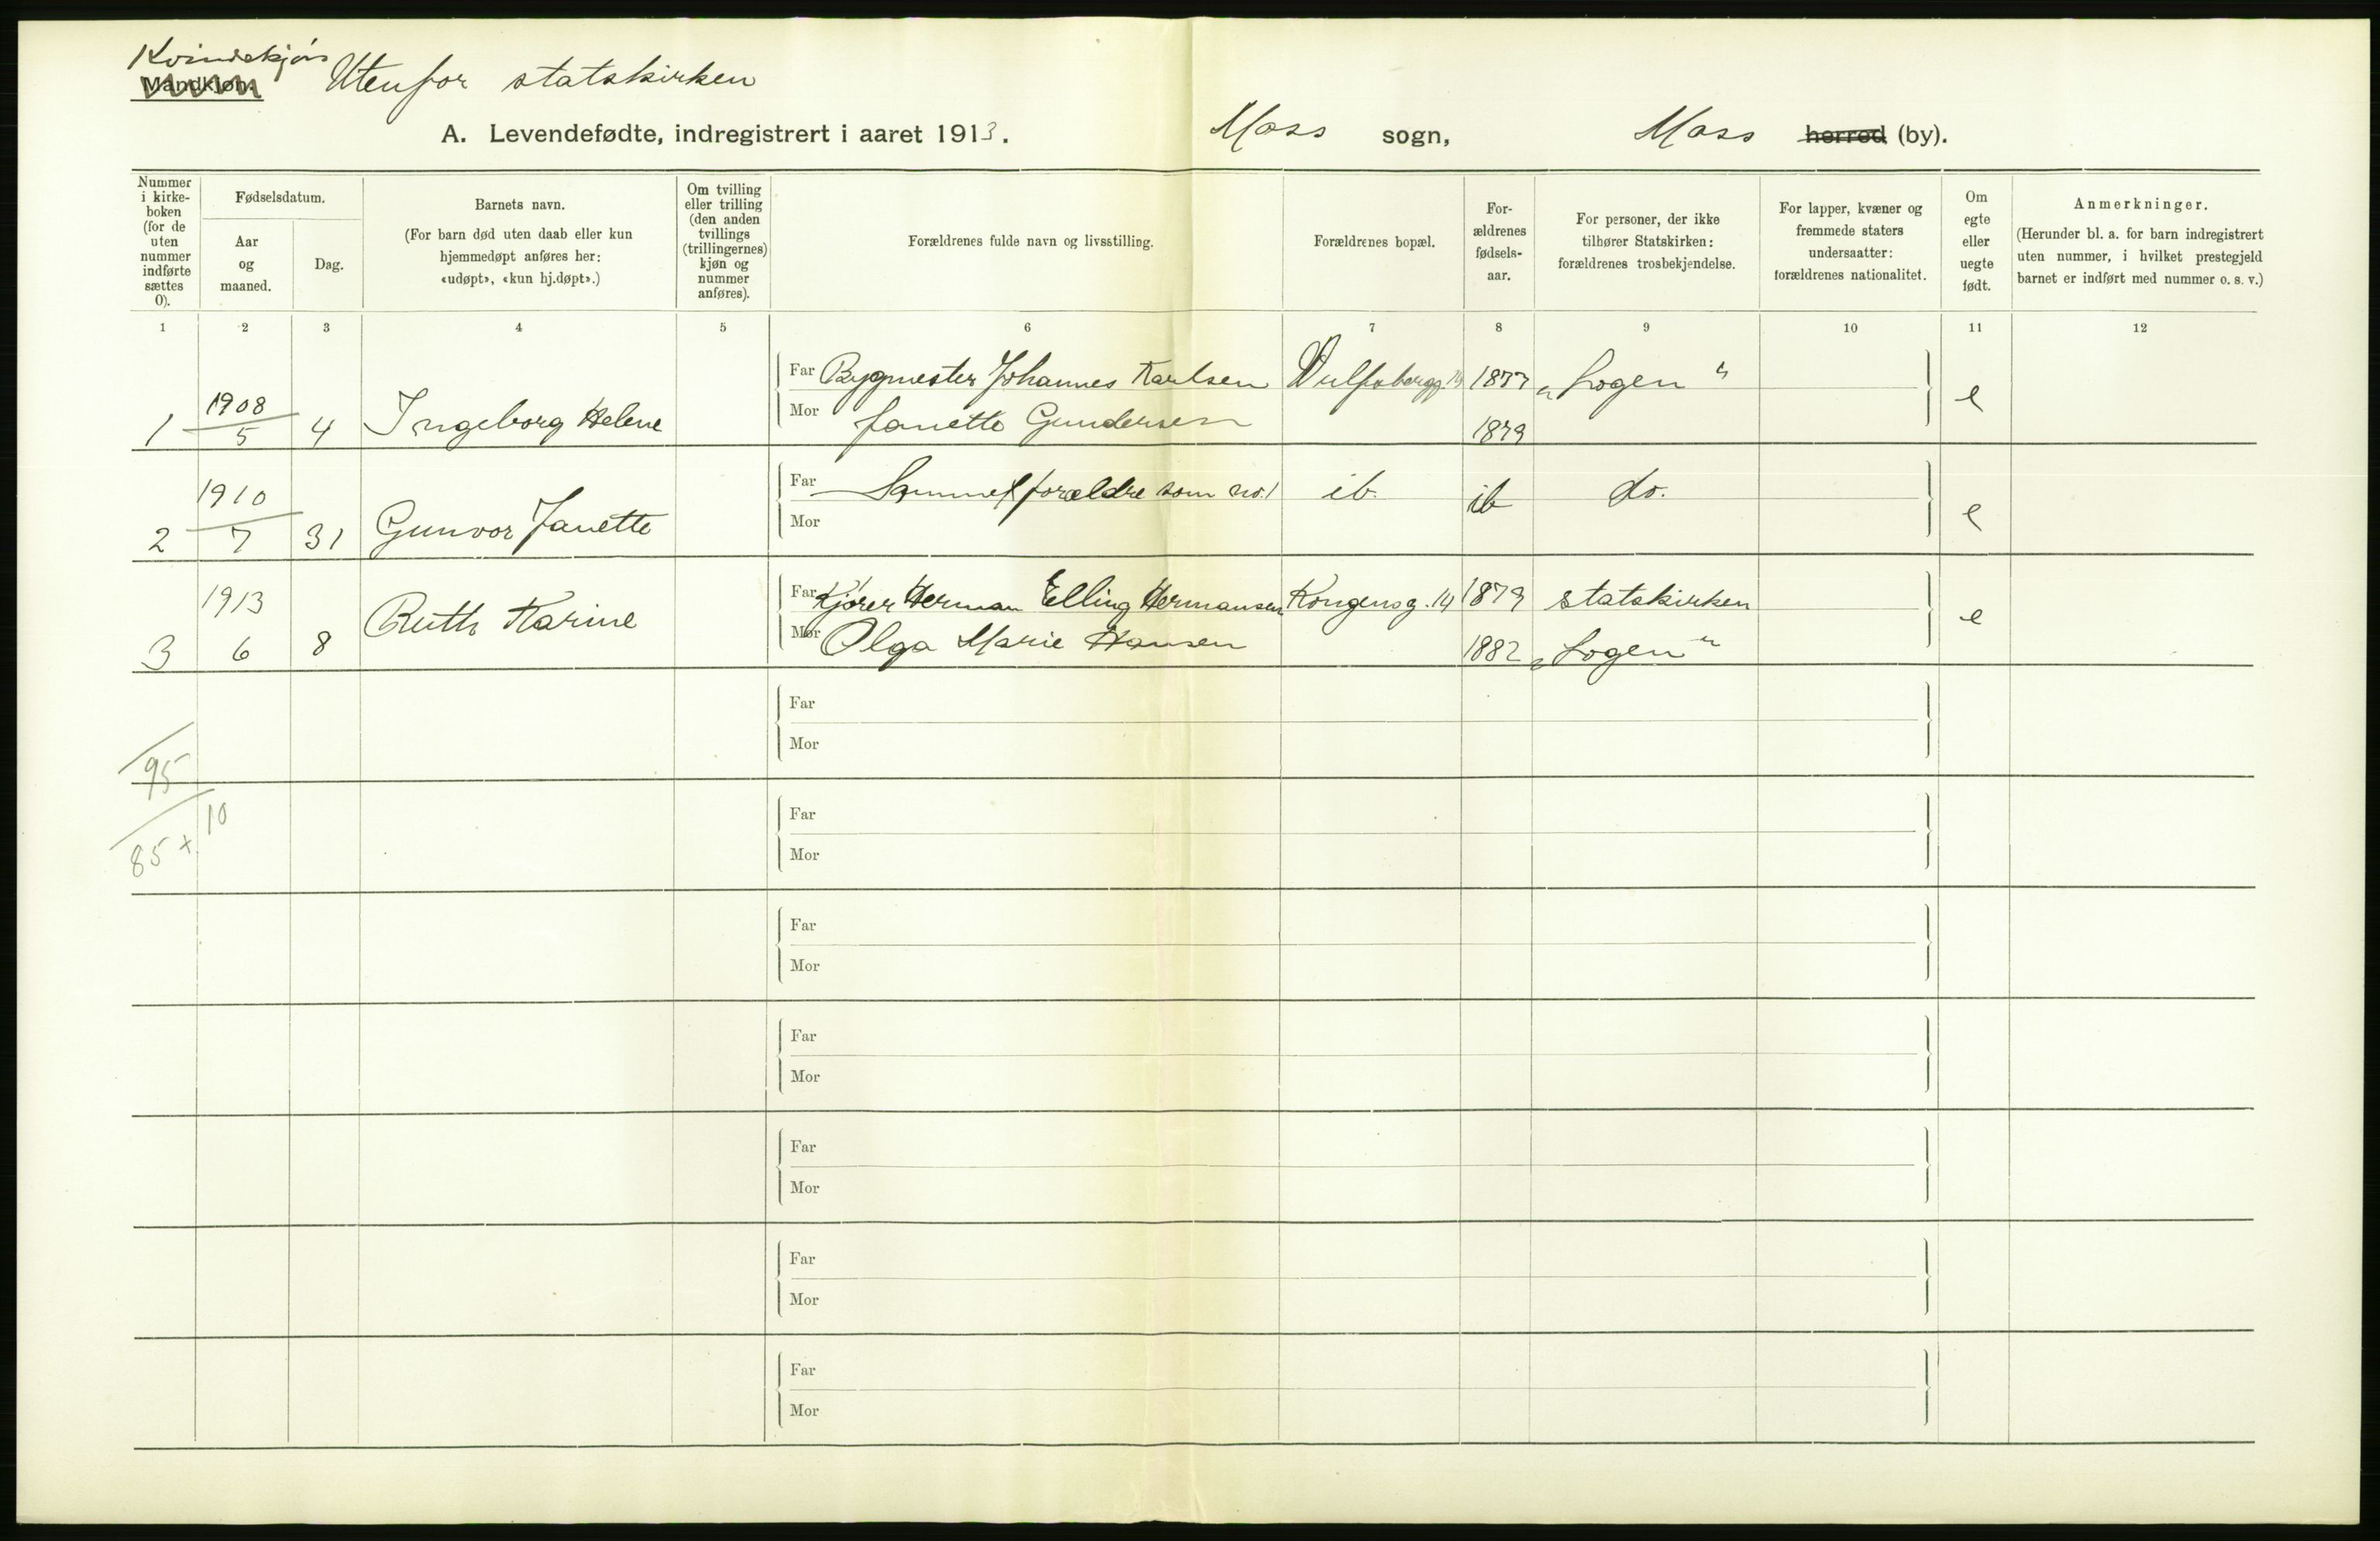 Kvindekjøn
Mandkjøn.
Utenfor statskirken
A. Levendefødte, indregistrert i aaret 1913. Moss sogn, Moss herred (by).
Nummer i kirke-boken (for de uten nummer indførte sættes 0).
Fødselsdatum.
Aar og maaned.
Dag.
Barnets navn.
(For barn død uten daab eller kun hjemmedøpt anføres her: «udøpt», «kun hj.døpt».)
Om tvilling eller trilling (den anden tvillings (trillingernes) kjøn og nummer anføres).
Forældrenes fulde navn og livsstilling.
Forældrenes bopæl.
For-ældrenes fødsels-aar.
For personer, der ikke tilhører Statskirken: forældrenes trosbekjendelse.
For lapper, kvæner og fremmede staters undersaatter: forældrenes nationalitet.
Om egte eller uegte født.
Anmerkninger.
(Herunder bl. a. for barn indregistrert uten nummer, i hvilket prestegjeld barnet er indført med nummer o. s. v.)
1 2 3 4 5 6 7 8 9 10 11 12
Far Bygmester Johannes Karlsen 1877 „Logen"
1 1908 5 4 Ingeborg Helene e
Mor Janette Gundersen 1879
Far Samme forældre som no. 1 ib. ib do.
2 1910 7 31 Gunvor Janette e
Mor
Far Kjører Herman Elling Hermansen Kongensg. 14 1879 statskirken
3 1913 6 8 Ruth Karine e
Mor Olga Marie Hansen 1882 „Logen"
Far
Mor
95
Far
10
Mor
85 +
Far
Mor
Far
Mor
Far
Mor
Far
Mor
Far
Mor